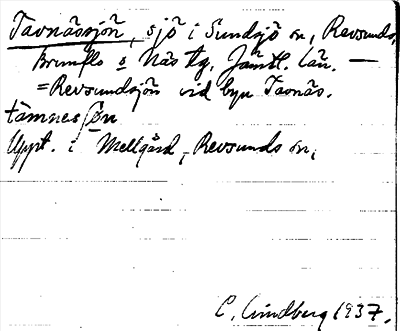 Tavnässjön, sjö i Sundsjö sn, Revsunds,
Brunflo o Näs tg, Jämtl. län. —
=Revsundsjön vid byn Tavnäs.
tämnesʃøn
Uppt. i Mellgård, Revsunds sn,
C. Lindberg 1937.